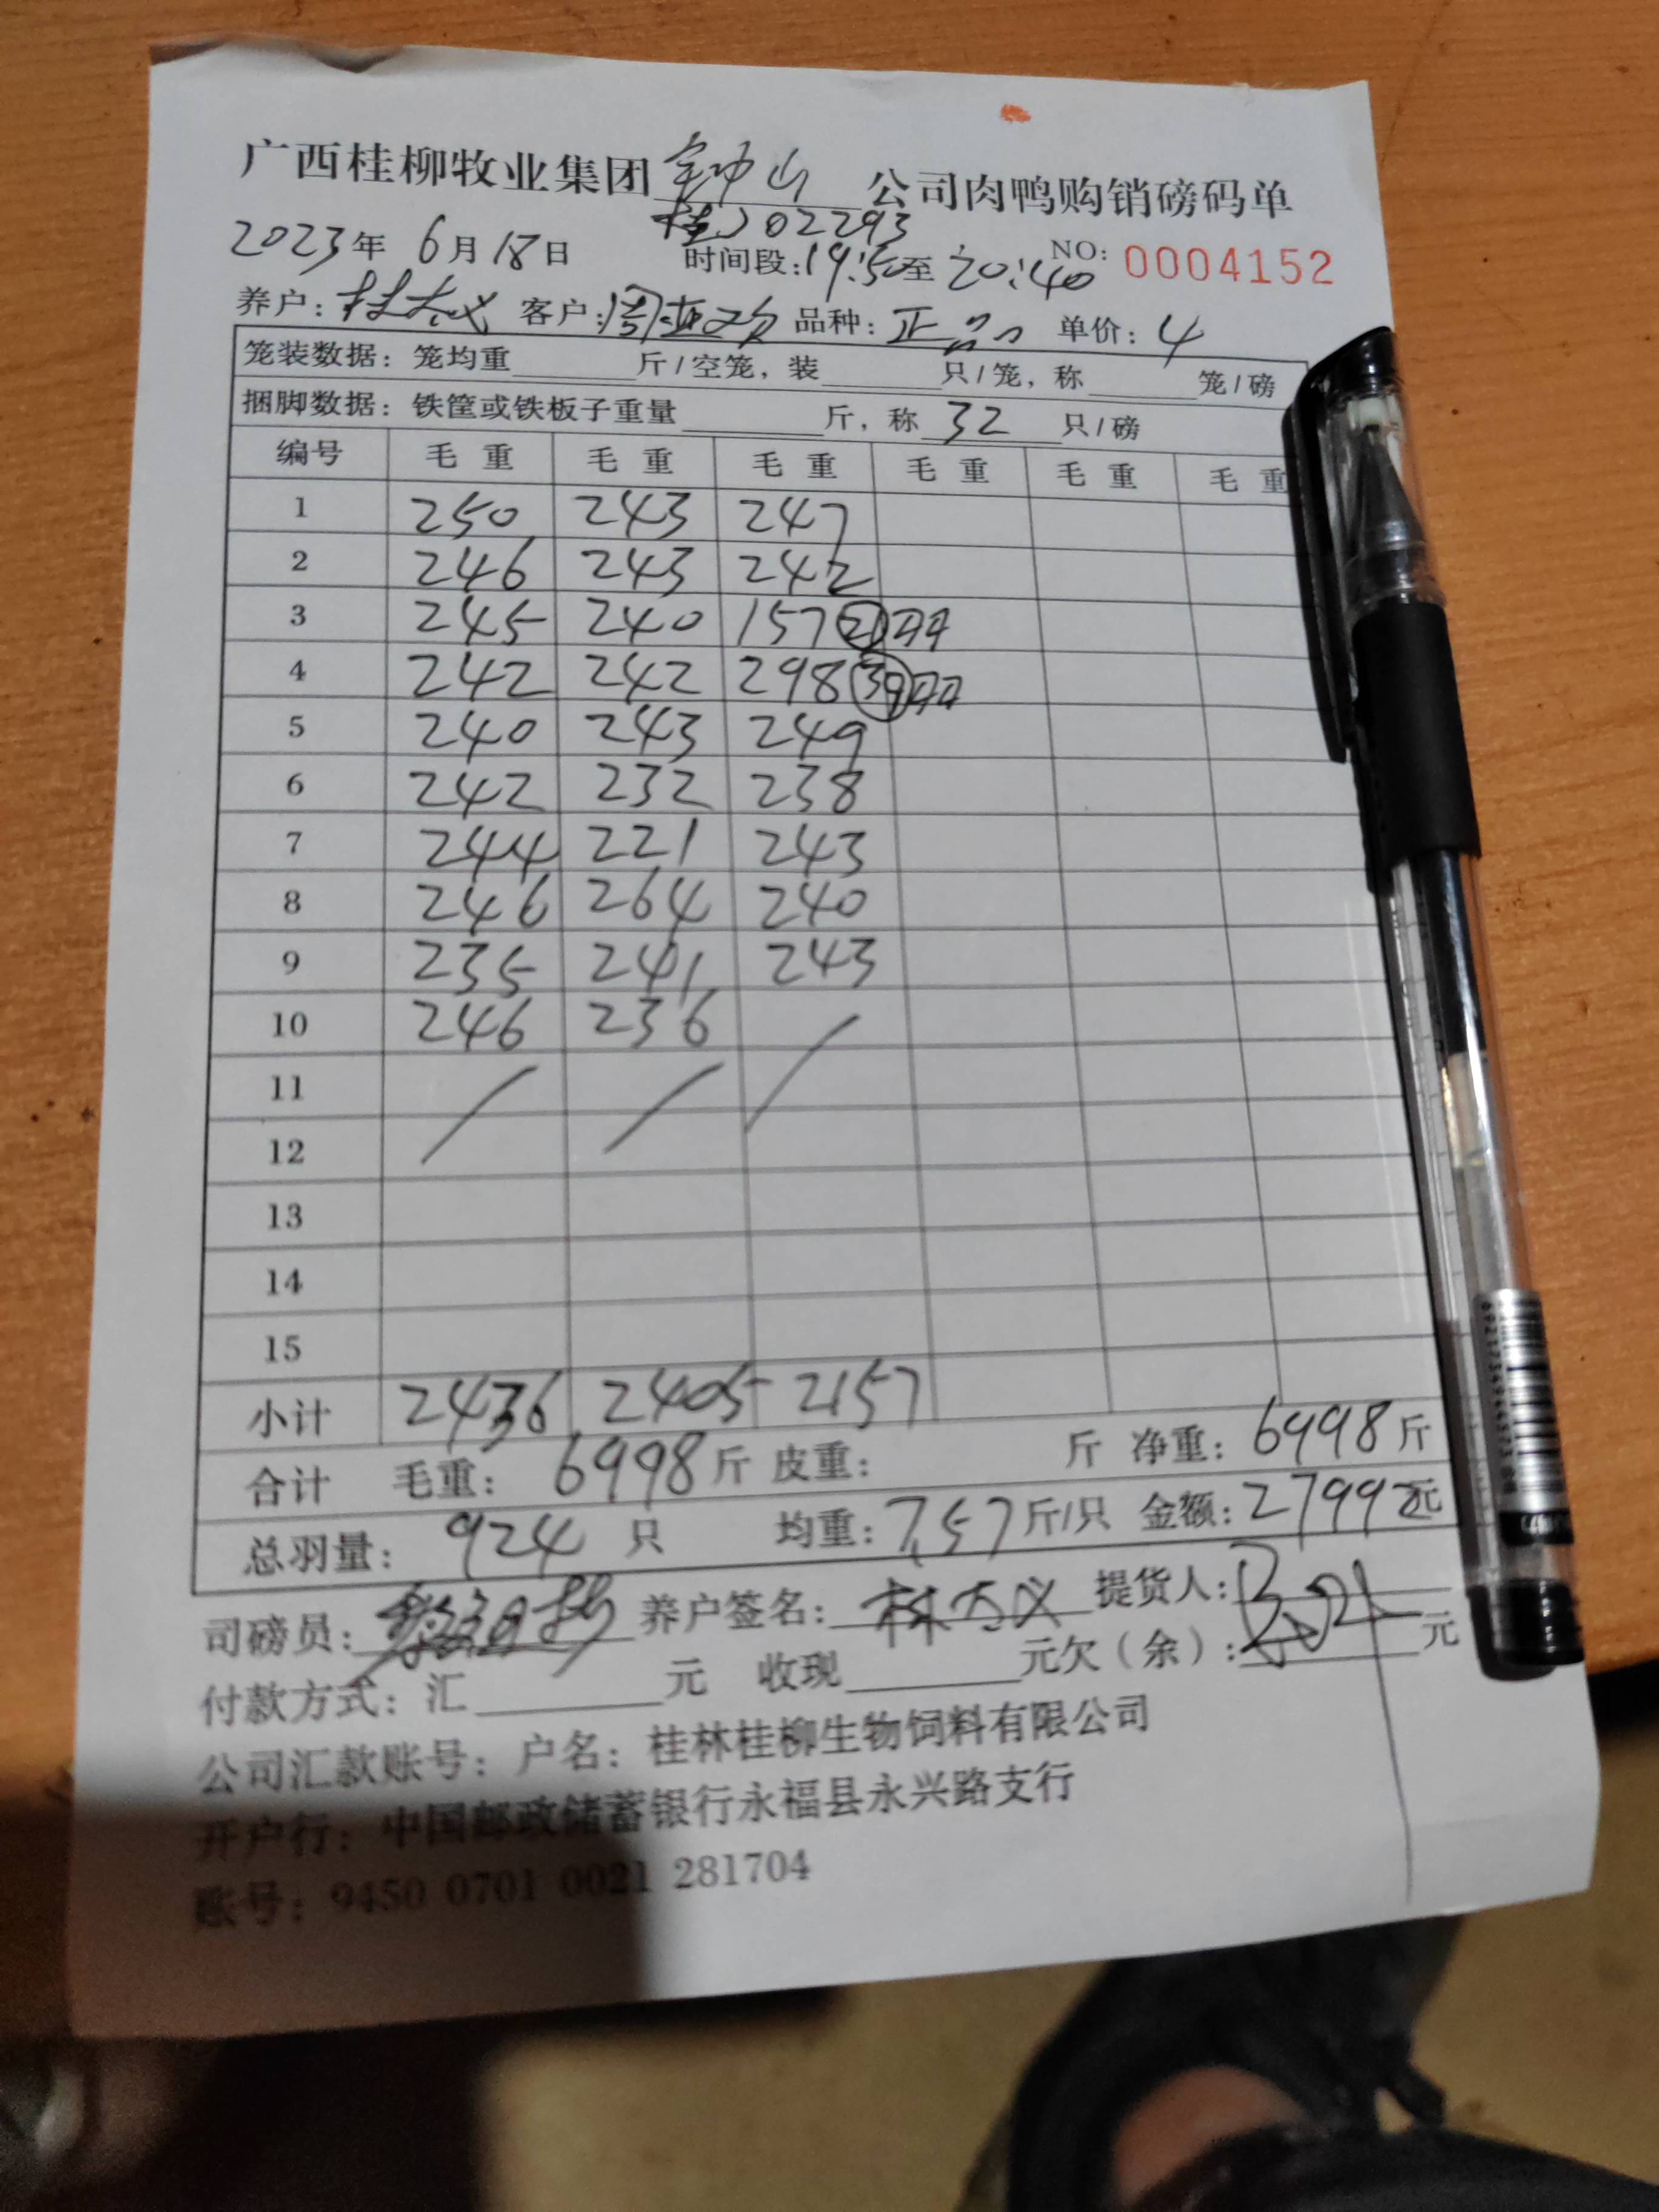 广西桂柳牧业集团 钟山 公司肉鸭购销磅码单
桂J02293
2023年 6月18日 时间段:19:50至20:40 NO: 0004152
养户: 林太义 客户: 品种: 正品 单价: 4
笼装数据: 笼均重 斤/空笼, 装 只/笼, 称 笼/磅
捆脚数据: 铁筐或铁板子重量 斤, 称 32 只/磅
编号 毛重 毛重 毛重 毛重 毛重 毛重
1 250 243 247
2 246 243 242
3 245 240 157 21只
4 242 242 298 39只
5 240 243 249
6 242 232 238
7 244 221 243
8 246 264 240
9 235 241 243
10 246 236
11
12
13
14
15
小计 2436 2405 2157
合计 毛重: 6998斤 皮重: 斤 净重: 6998斤
总羽量: 924 只 均重: 7.57斤/只 金额: 27992元
司磅员: 养户签名: 林太义 提货人:
付款方式: 汇 元 收现 元欠(余): 元
公司汇款账号: 户名: 桂林桂柳生物饲料有限公司
开户行: 中国邮政储蓄银行永福县永兴路支行
账号: 9450 0701 0021 281704